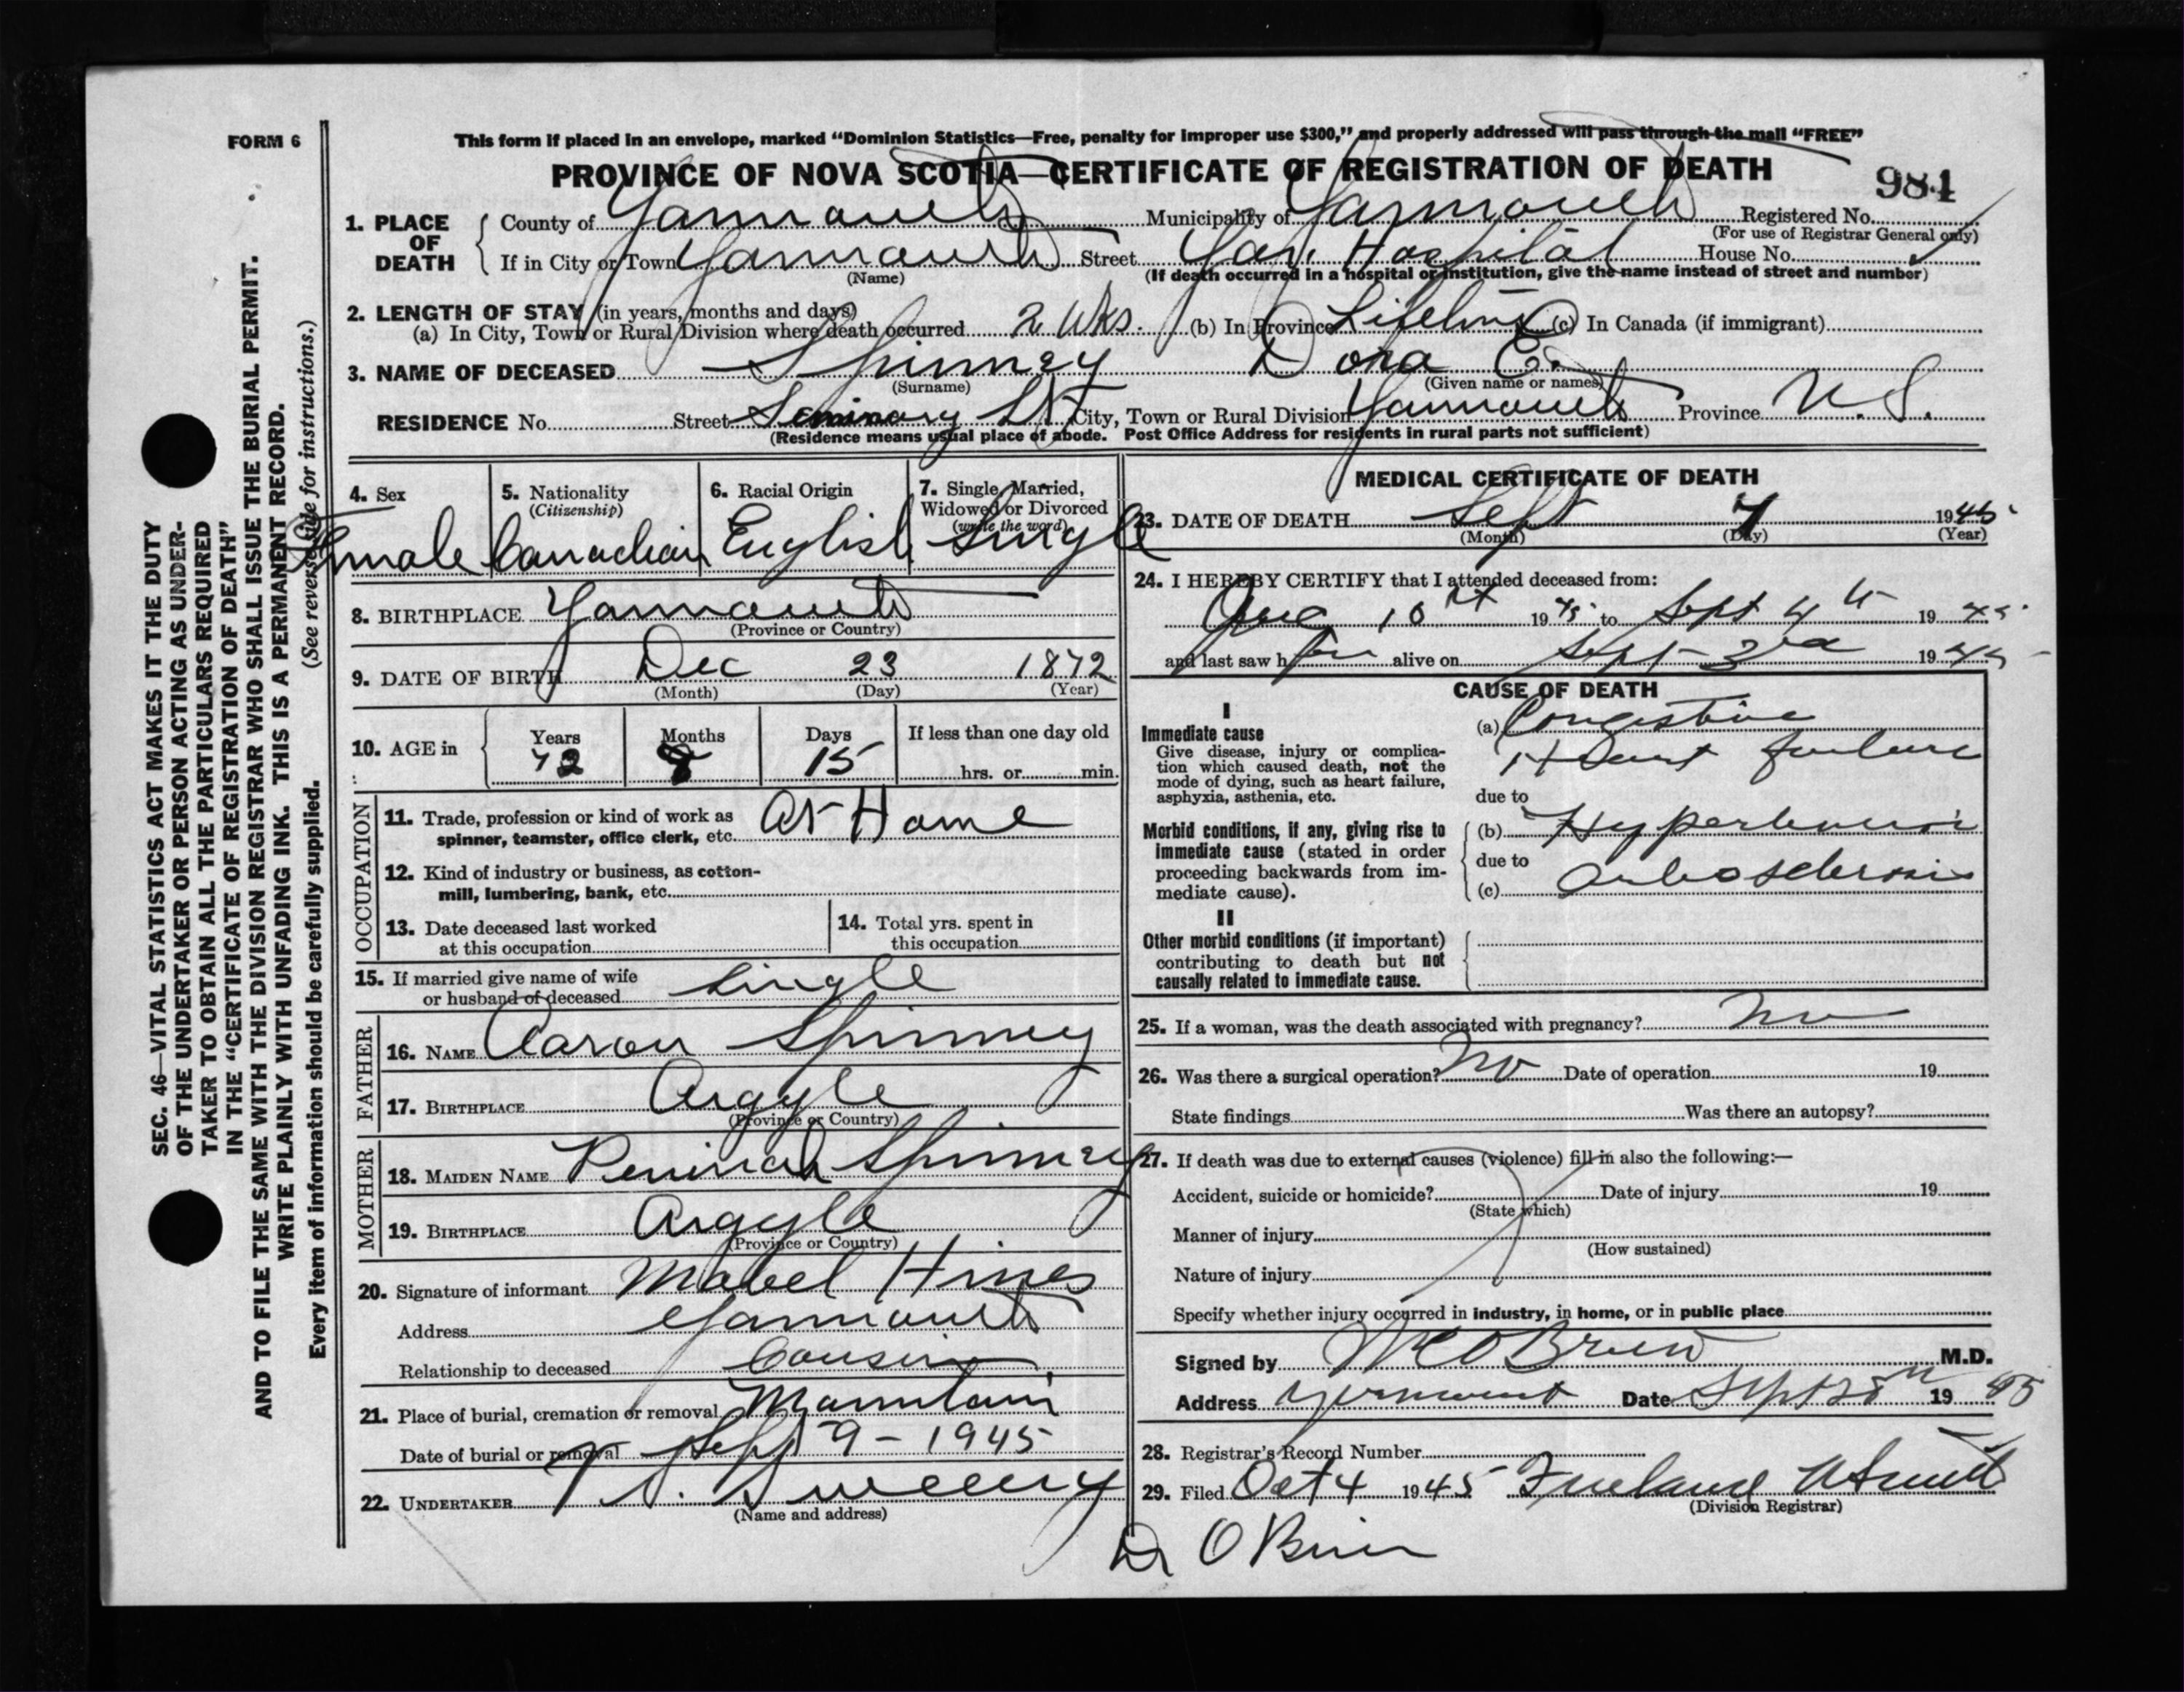 FORM 6
This form if placed in an envelope, marked "Dominion Statistics—Free, penalty for improper use $300," and properly addressed will pass through the mail "FREE"
PROVINCE OF NOVA SCOTIA—CERTIFICATE OF REGISTRATION OF DEATH
984
1. PLACE OF DEATH
County of Yarmouth Municipality of Yarmouth Registered No.
(For use of Registrar General only)
If in City or Town Yarmouth Street Yar. Hospital House No.
(Name) (If death occurred in a hospital or institution, give the name instead of street and number)
2. LENGTH OF STAY (in years, months and days)
(a) In City, Town or Rural Division where death occurred 2 Wks. (b) In Province Lifetime (c) In Canada (if immigrant)
3. NAME OF DECEASED Spinney Dora E.
(Surname) (Given name or names)
RESIDENCE No. Street Seminary St City, Town or Rural Division Yarmouth Province N.S.
(Residence means usual place of abode. Post Office Address for residents in rural parts not sufficient)
4. Sex
Female
5. Nationality
(Citizenship)
Canadian
6. Racial Origin
English
7. Single, Married,
Widowed or Divorced
(write the word)
Single
8. BIRTHPLACE Yarmouth
(Province or Country)
9. DATE OF BIRTH Dec 23 1872
(Month) (Day) (Year)
10. AGE in
Years Months Days If less than one day old
72 8 15 hrs. or min.
OCCUPATION
11. Trade, profession or kind of work as
spinner, teamster, office clerk, etc. At Home
12. Kind of industry or business, as cotton-
mill, lumbering, bank, etc.
13. Date deceased last worked
at this occupation
14. Total yrs. spent in
this occupation
15. If married give name of wife
or husband of deceased Single
FATHER
16. NAME Aaron Spinney
17. BIRTHPLACE Argyle
(Province or Country)
MOTHER
18. MAIDEN NAME Peninah Spinney
19. BIRTHPLACE Argyle
(Province or Country)
20. Signature of informant Mabel Hines
Address Yarmouth
Relationship to deceased Cousin
21. Place of burial, cremation or removal Mountain
Date of burial or removal Sept 9 - 1945
22. UNDERTAKER V. S. Sweeny
(Name and address)
MEDICAL CERTIFICATE OF DEATH
23. DATE OF DEATH Sept 7 1945
(Month) (Day) (Year)
24. I HEREBY CERTIFY that I attended deceased from:
Aug 10th 1945 to Sept 4th 1945
and last saw her alive on Sept 3rd 1945
CAUSE OF DEATH
I
Immediate cause
Give disease, injury or complica-
tion which caused death, not the
mode of dying, such as heart failure,
asphyxia, asthenia, etc.
(a) Congestive
Heart failure
due to
Morbid conditions, if any, giving rise to
immediate cause (stated in order
proceeding backwards from im-
mediate cause).
(b) Hypertension
due to
(c) Arteriosclerosis
II
Other morbid conditions (if important)
contributing to death but not
causally related to immediate cause.
25. If a woman, was the death associated with pregnancy? No
26. Was there a surgical operation? No Date of operation 19
State findings Was there an autopsy?
27. If death was due to external causes (violence) fill in also the following:—
Accident, suicide or homicide? Date of injury 19
(State which)
Manner of injury
(How sustained)
Nature of injury
Specify whether injury occurred in industry, in home, or in public place
Signed by O'Brien M.D.
Address Yarmouth Date Sept 28th 1945
28. Registrar's Record Number
29. Filed Oct 4 1945 Freeland Smith
(Division Registrar)
Dr O'Brien
SEC. 46—VITAL STATISTICS ACT MAKES IT THE DUTY
OF THE UNDERTAKER OR PERSON ACTING AS UNDER-
TAKER TO OBTAIN ALL THE PARTICULARS REQUIRED
IN THE "CERTIFICATE OF REGISTRATION OF DEATH"
AND TO FILE THE SAME WITH THE DIVISION REGISTRAR WHO SHALL ISSUE THE BURIAL PERMIT.
WRITE PLAINLY WITH UNFADING INK. THIS IS A PERMANENT RECORD.
(See reverse side for instructions.)
Every item of information should be carefully supplied.